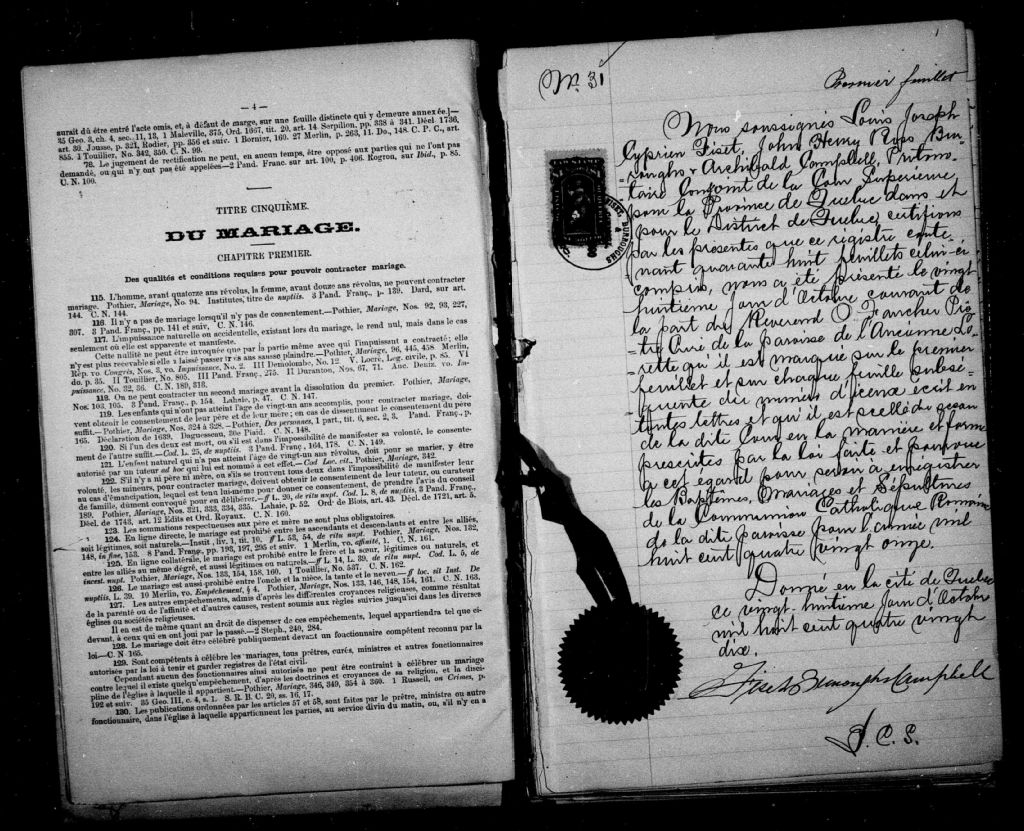 — 4 —
aurait dû être entré l'acte omis, et, à défaut de marge, sur une feuille distincte qui y demeure annexée.]—
35 Geo. 3, ch. 4, sec. 11, 13, 1 Maleville, 375, Ord. 1667, tit. 20, art. 14. Serpillon, pp. 338 à 341. Décl. 1736,
art. 30. Jousse, p. 321, Rodier, pp. 356 et suiv. 1 Bornier, 160. 27 Merlin, p. 263, 11. Do., 148. C. P. C., art.
855. 1 Touillier, No. 342, 350. C. N. 99.
78. Le jugement de rectification ne peut, en aucun temps, être opposé aux parties qui ne l'ont pas
demandé, ou qui n'y ont pas été appelées—2 Pand. Franc. sur art. 100, p. 406. Rogron, sur Ibid., p. 85.
C. N. 100.
TITRE CINQUIÈME.
DU MARIAGE.
CHAPITRE PREMIER.
Des qualités et conditions requises pour pouvoir contracter mariage.
115. L'homme, avant quatorze ans révolus, la femme, avant douze ans révolus, ne peuvent contracter
mariage. Pothier, Mariage, No. 94. Institutes, titre de nuptiis. 3 Pand. Franç., p. 139. Dard, sur art.
144. C. N. 144.
116. Il n'y a pas de mariage lorsqu'il n'y a pas de consentement.—Pothier, Mariage, Nos. 92, 93, 227,
307. 3 Pand. Franç., pp. 141 et suiv. C. N. 146.
117. L'impuissance naturelle ou accidentelle, existant lors du mariage, le rend nul, mais dans le cas
seulement où elle est apparente et manifeste.
Cette nullité ne peut être invoquée que par la partie même avec qui l'impuissant a contracté; elle
n'y est plus recevable si elle a laissé passer trois ans sans se plaindre.—Pothier, Mariage, 96, 445, 458. Merlin,
Rép. vo. Congrès, Nos. 3, vo. Impuissance, No. 2. III Demolombe, No. 12. V. Locré, Leg. civile, p. 85. VI
do. p. 35. II Touillier, No. 805. III Pand. Franç., 275. II Duranton, Nos. 67, 71. Anc. Denz. vo. Im-
puissance, No. 32, 36. C. N. 189, 313.
118. On ne peut contracter un second mariage avant la dissolution du premier. Pothier, Mariage,
Nos. 103, 105. 3 Pand. Franç., p. 154. Lahaie, p. 47. C. N. 147.
119. Les enfants qui n'ont pas atteint l'âge de vingt-un ans accomplis, pour contracter mariage, doi-
vent obtenir le consentement de leur père et de leur mère; en cas de dissentiment le consentement du père
suffit.—Pothier, Mariage, Nos. 324 à 328.—Pothier, Des personnes, 1 part., tit. 6, sec. 2, 3. Pand. Franç., p.
165. Déclaration de 1639. Daguesseau, 30e Plaid. C. N. 148.
120. Si l'un des deux est mort, ou s'il est dans l'impossibilité de manifester sa volonté, le consente-
ment de l'autre suffit.—Cod. L. 25, de nuptiis. 3 Pand. Franç., 164, 178. C. N. 149.
121. L'enfant naturel qui n'a pas atteint l'âge de vingt-un ans révolus, doit pour se marier, y être
autorisé par un tuteur ad hoc qui lui est nommé à cet effet.—Cod Loc. cit. Pothier, Mariage, 342.
122. S'il n'y a ni père ni mère, ou s'ils se trouvent tous deux dans l'impossibilité de manifester leur
volonté, les mineurs, pour contracter mariage, doivent obtenir le consentement de leur tuteur, ou curateur
au cas d'émancipation, lequel est tenu lui-même pour donner ce consentement, de prendre l'avis du conseil
de famille, dûment convoqué pour en délibérer.—ff L. 20, de ritu nupt. Cod. L. 8, de nuptiis, 3 Pand. Franç.,
189. Pothier, Mariage, Nos. 321, 333, 334, 335. Lahaie, p. 52. Ord' de Blois, art. 43. Décl. de 1721, art. 5.
Décl. de 1743, art. 12 Edits et Ord. Royaux. C. N. 160.
123. Les sommations respectueuses aux père et mère ne sont plus obligatoires.
124. En ligne directe, le mariage est prohibé entre les ascendants et descendants et entre les alliés,
soit légitimes, soit naturels.—Instit. liv. 1, tit. 10. ff L. 53, 54, de ritu nupt. Pothier, Mariage, Nos. 132,
148, in fine, 153. 8 Pand. Franç., pp. 193, 197, 295 et suiv. 1 Merlin, vo. affinité, 1. C. N. 161.
125. En ligne collatérale, le mariage est prohibé entre le frère et la sœur, légitimes ou naturels, et
entre les alliés au même dégré, et aussi légitimes ou naturels.—ff L. 14, L. 39, de ritu nupt. Cod. L. 5, de
incest. nupt. Pothier, Mariage, Nos. 133, 154, 158, 160. 1 Touillier, No. 537. C. N. 162.
126. Le mariage est aussi prohibé entre l'oncle et la nièce, la tante et le neveu.—ff loc. cit Inst. De
nuptiis, L. 39. 10 Merlin, vo. Empêchement, § 4. Pothier, Mariage, Nos. 133, 146, 148, 154, 161. C. N. 163.
127. Les autres empêchements, admis d'après les différentes croyances religieuses, comme résultat
de la parenté ou de l'affinité et d'autres causes, restent soumis aux règles suivies jusqu'ici dans les diverses
églises ou sociétés religieuses.
Il en est de même quant au droit de dispenser de ces empêchements, lequel appartiendra tel que ci-
devant, à ceux qui en ont joui par le passé.—2 Steph., 240, 284.
128. Le mariage doit être célébré publiquement devant un fonctionnaire compétent reconnu par la
loi—C. N 165.
129. Sont compétents à célèbre les mariages, tous prêtres, curés, ministres et autres fonctionnaires
autorisés par la loi à tenir et garder registres de l'état civil.
Cependant aucun des fonctionnaires ainsi autorisés ne peut être contraint à célébrer un mariage
contre lequel il existe quelqu'empêchement, d'après les doctrines et croyances de sa religion, et la disci-
pline de l'église à laquelle il appartient.—Pothier, Mariage, 346, 349, 354 à 360. 1 Russell, on Crimes, p.
192 et suiv. 35 Geo. III, c. 4, s. 1. S. R. B. C. 20, ss. 16, 17.
130. Les publications ordonnées par les articles 57 et 58, sont faites par le prêtre, ministre ou autre
fonctionnaire, dans l'église à laquelle appartiennent les parties, au service divin du matin, ou, s'il n'y en a
No. 31
Premier feuillet
Nous soussignés Louis Joseph
Cyprien Fiset, John Henry Ross Bur-
roughs & Archibald Campbell, Protono-
taire Conjoint de la Cour Superieure
pour la Province de Quebec dans et
pour le District de Quebec, certifions
par les présentes que ce régistre conte-
nant quarante huit feuillets celui-ci
compris, nous a été présenté le vingt
huitième jour d'Octobre courant de
la part du Reverend O. Faucher Prê-
tre Curé de la paroisse de l'Ancienne Lo-
rette qu'il est marqué sur le premier
feuillet et sur chaque feuille subsé-
quente du numéro d'iceux écrit en
toutes lettres et qu'il est scellé du sceau
de la dite Cour en la manière et forme
prescrites par la loi faite et pourvue
à cet égard pour servir à enregistrer
les Baptêmes, Mariages et Sépultures
de la Communion Catholique Romaine
de la dite paroisse pour l'année mil
huit cent quatre vingt onze.
Donné en la cité de Quebec
ce vingt-huitième jour d'Octobre
mil huit cent quatre vingt
dix.
Fiset Burroughs Campbell
P. C. S.